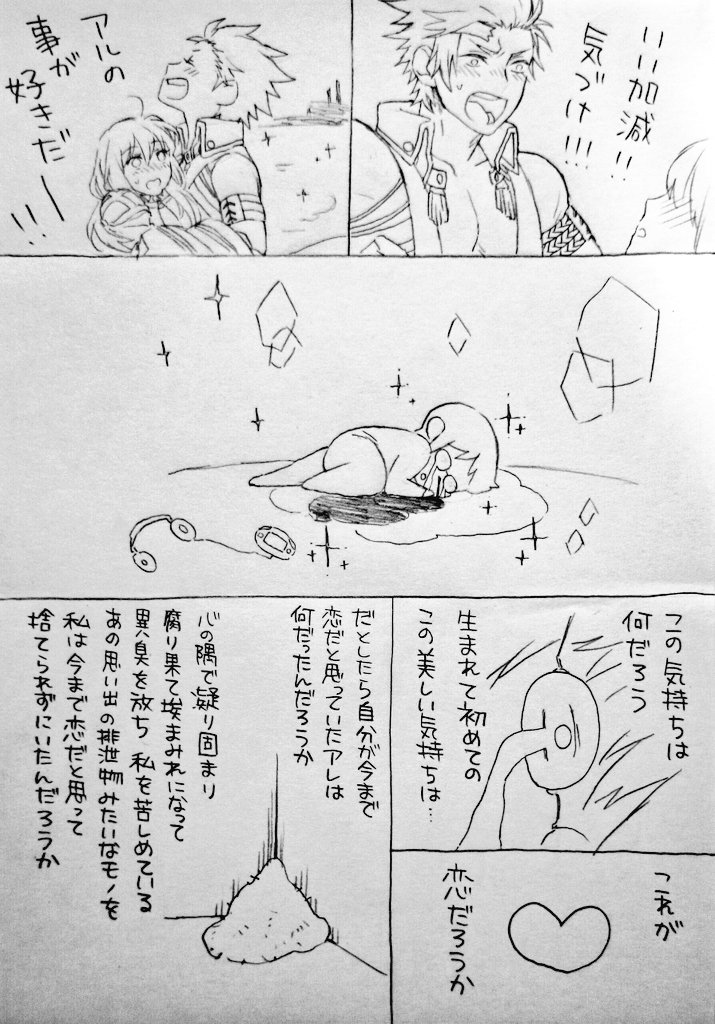 いい加減!!
気づけ!!!
アルの
事が
好きだー!!!
この気持ちは
何だろう
生まれて初めての
この美しい気持ちは…
これが
恋だろうか
だとしたら自分が今まで
恋だと思っていたアレは
何だったんだろうか
心の隅で凝り固まり
腐り果て埃まみれになって
異臭を放ち 私を苦しめている
あの思い出の排泄物みたいなモノを
私は今まで恋だと思って
捨てられずにいたんだろうか